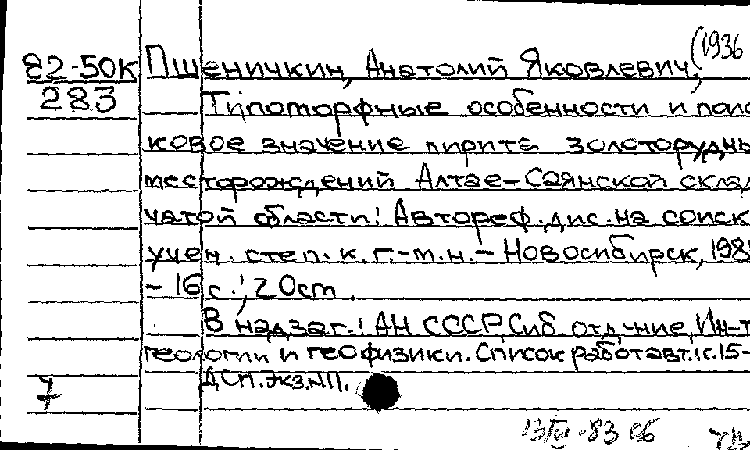 82-50К Пшеничкин, Анатолий Яковлевич, (1936
283 Типоморфные особенности и поис
ковое значение пирита золоторудны
месторождений Алтае-Саянской склад
чатой области: Автореф. дис. на соиск
учен. степ. к. г.-м.н. - Новосибирск, 198
- 16 с.; 20 см.
В надзаг.: АН СССР, Сиб. отд-ние, Ин-т
геологии и геофизики. Список работ авт.: с. 15-
ДСП. Экз. №11.
7
83